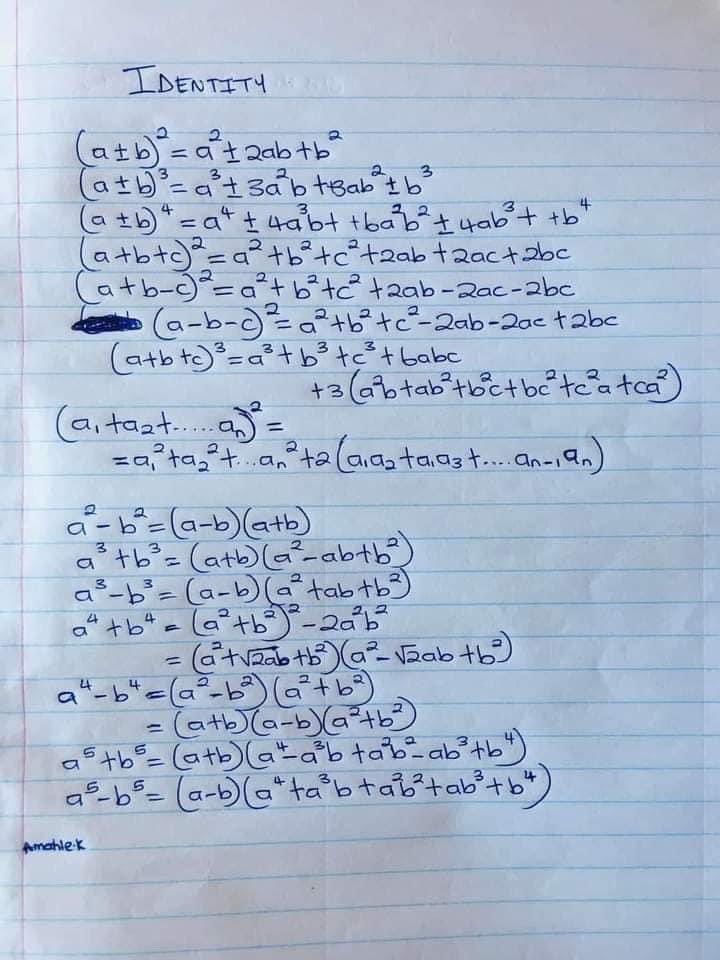 IDENTITY
(a±b)²=a²±2ab+b²
(a±b)³=a³±3a²b+3ab²±b³
(a±b)⁴=a⁴±4a³b++6a²b²±4ab³++b⁴
(a+b+c)²=a²+b²+c²+2ab+2ac+2bc
(a+b-c)²=a²+b²+c²+2ab-2ac-2bc
(a-b-c)²=a²+b²+c²-2ab-2ac+2bc
(a+b+c)³=a³+b³+c³+6abc
+3(a²b+ab²+b²c+bc²+c²a+ca²)
(a₁+a₂+.....aₙ)²=
=a₁²+a₂²+...aₙ²+2(a₁a₂+a₁a₃+....aₙ₋₁aₙ)
a²-b²=(a-b)(a+b)
a³+b³=(a+b)(a²-ab+b²)
a³-b³=(a-b)(a²+ab+b²)
a⁴+b⁴=(a²+b²)²-2a²b²
=(a²+√2ab+b²)(a²-√2ab+b²)
a⁴-b⁴=(a²-b²)(a²+b²)
=(a+b)(a-b)(a²+b²)
a⁵+b⁵=(a+b)(a⁴-a³b+a²b²-ab³+b⁴)
a⁵-b⁵=(a-b)(a⁴+a³b+a²b²+ab³+b⁴)
Amahle.K